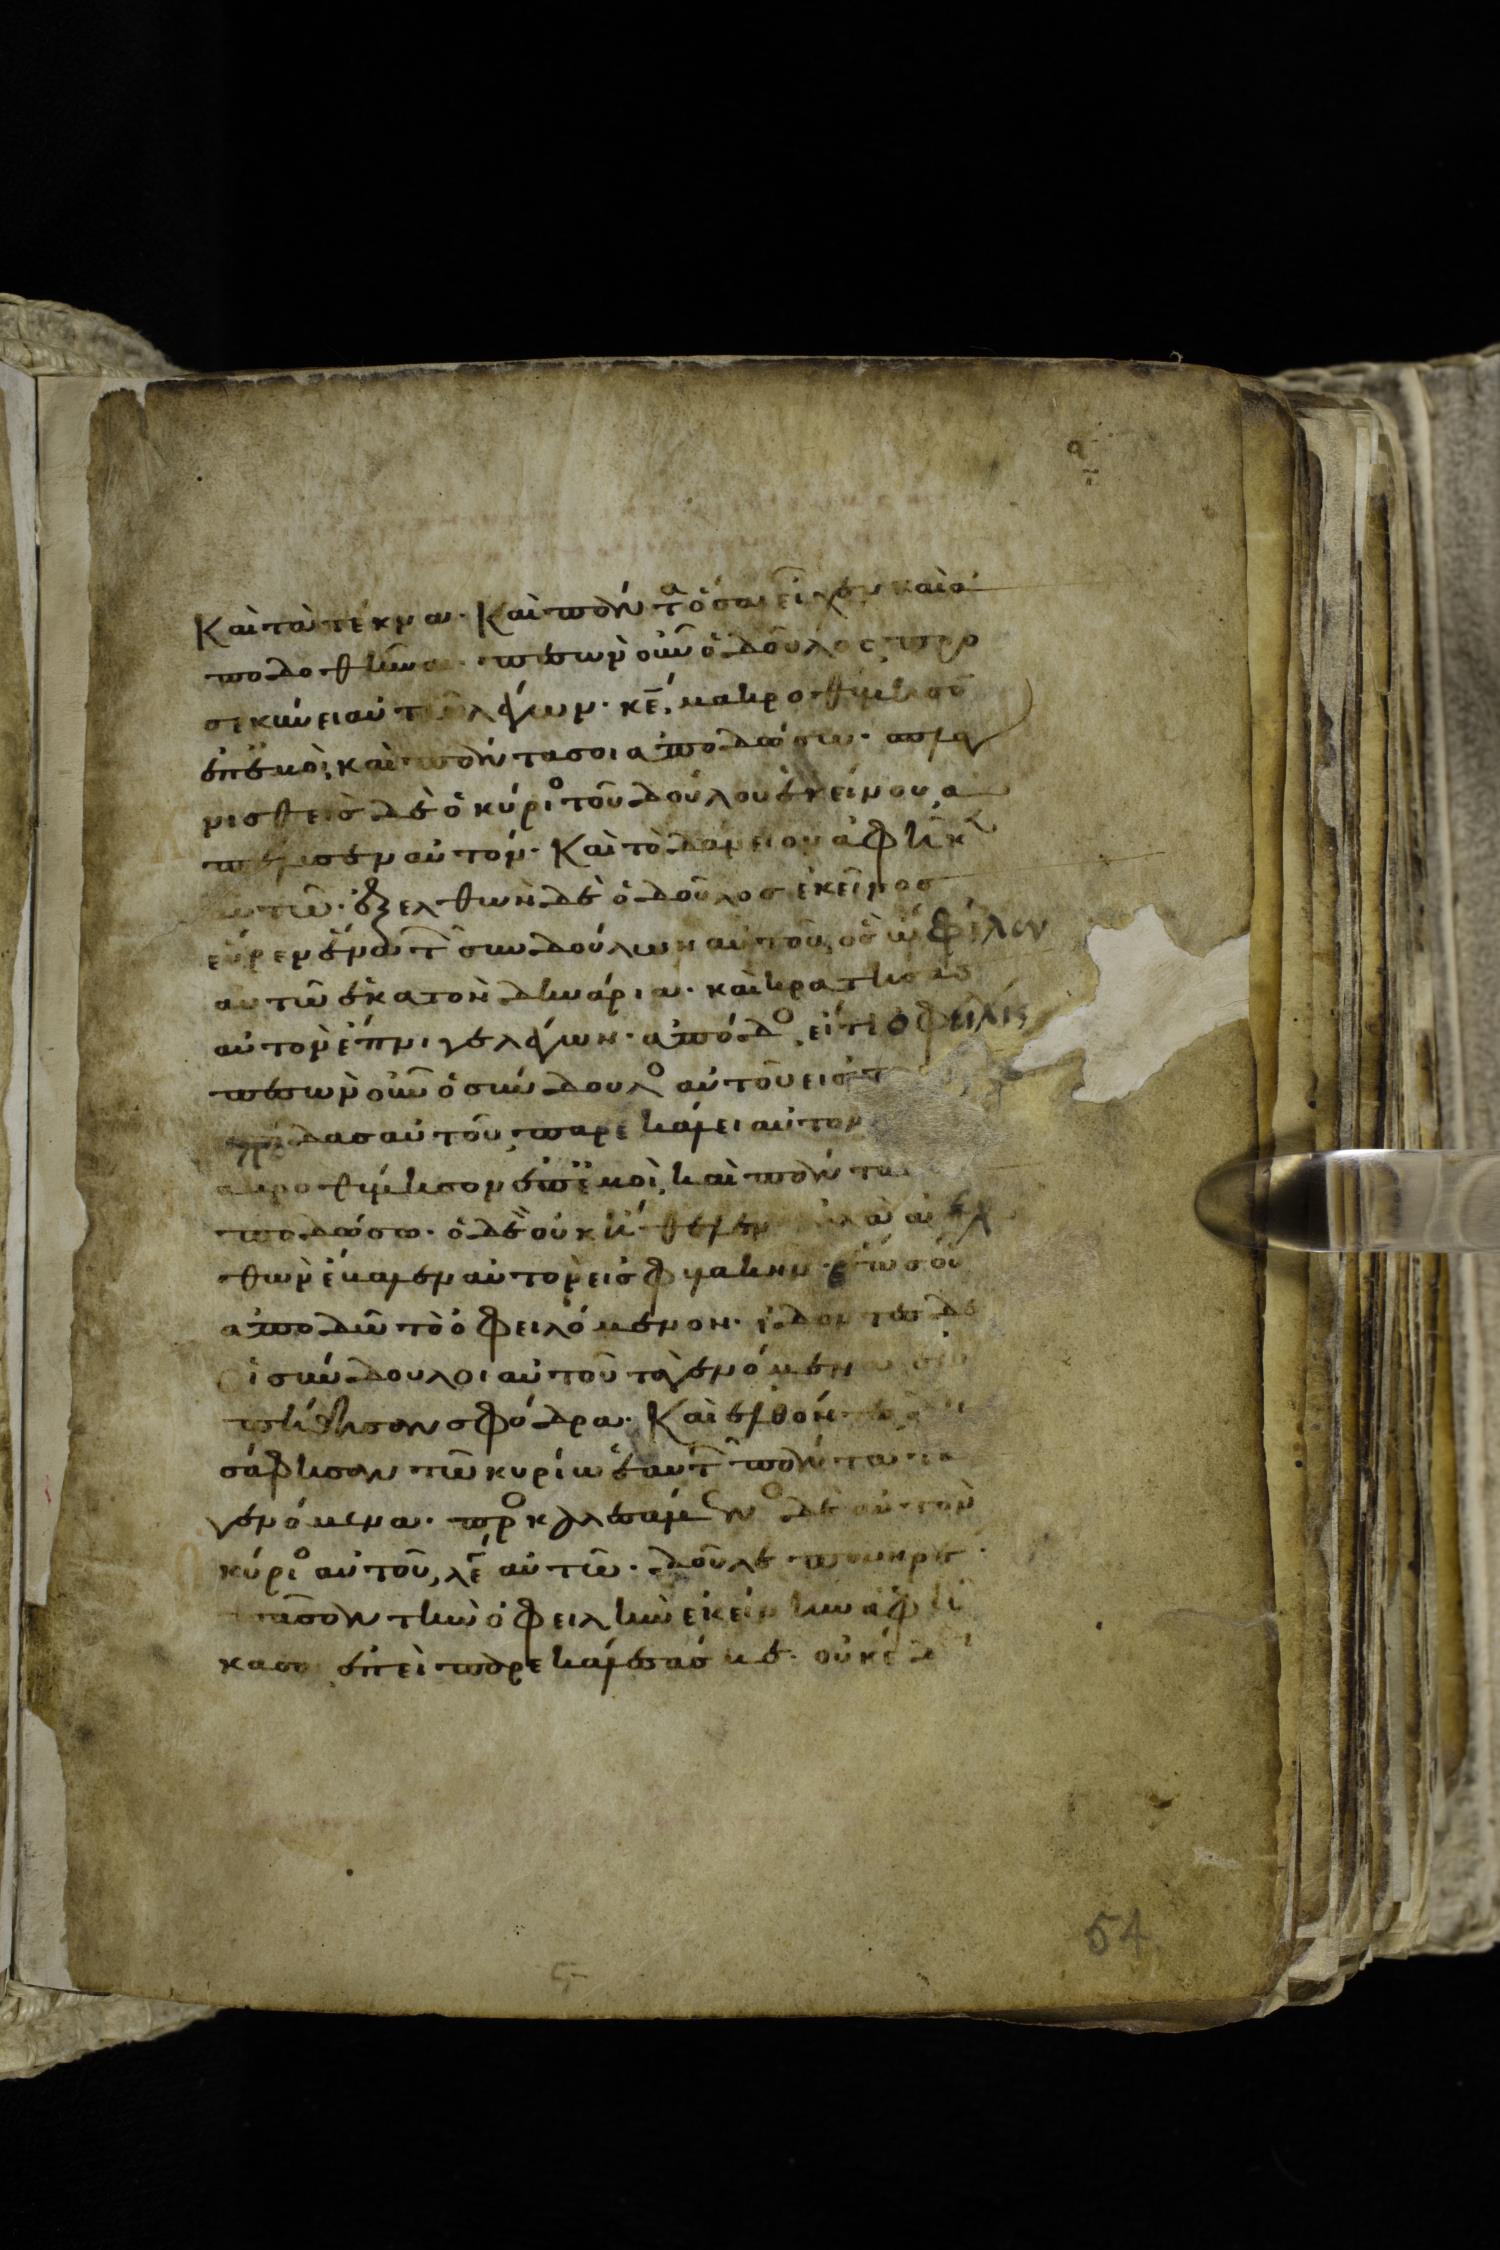 Καὶ τὰ τέκνα· Καὶ πάντα ὅσα εἶχεν καὶ ἀ
ποδοθῆναι· πεσὼν οὖν ὁ δοῦλος προ
σεκύνει αὐτῶ λέγων· κε, μακροθύμησον
ἐπ' ἐμοὶ, καὶ πάντα σοι ἀποδώσω· σπλαγ
χνισθεὶς δὲ ὁ κύριος τοῦ δούλου ἐκείνου, ἀ
πέλυσεν αὐτόν· Καὶ τὸ δάνειον ἀφῆκεν
αὐτῶ· ἐξελθὼν δὲ ὁ δοῦλος ἐκεῖνος
εὗρεν ἕνα τ συνδούλων αὐτοῦ, ὃς ὤφιλεν
αὐτῶ ἑκατὸν δηνάρια· καὶ κρατήσας
αὐτὸν ἔπνιγε λέγων· ἀπόδο, εἴ τι ὀφιλις
πεσὼν οὖν ὁ σύνδουλο αὐτοῦ εἰς τ
πόδας αὐτοῦ, παρεκάλει αὐτὸν
ακροθύμησον ἐπ' ἐμοὶ, καὶ πάντα
ποδώσω· ὁ δὲ οὐκ ἤθελεν ἀλλὰ ἀπελ
θὼν ἔβαλεν αὐτὸν εἰς φυλακὴν ἕως οὗ
ἀποδῶ τὸ ὀφειλόμενον· ἰδόντες δὲ
οἱ σύνδουλοι αὐτοῦ τὰ γενόμενα ἐλυ
πήθησαν σφόδρα· Καὶ ἐλθόντες διε
σάφησαν τῶ κυρίω ἑαυτ πάντα τὰ
γενόμενα· προσκαλεσάμενο δὲ αὐτὸν
κύριο αὐτοῦ, λε αὐτῶ· δοῦλε πονηρὲ·
πᾶσαν τὴν ὀφειλὴν ἐκείνην ἀφῆ
κα σοι ἐπεὶ παρεκάλεσάς με· οὐκ ἔδει
54